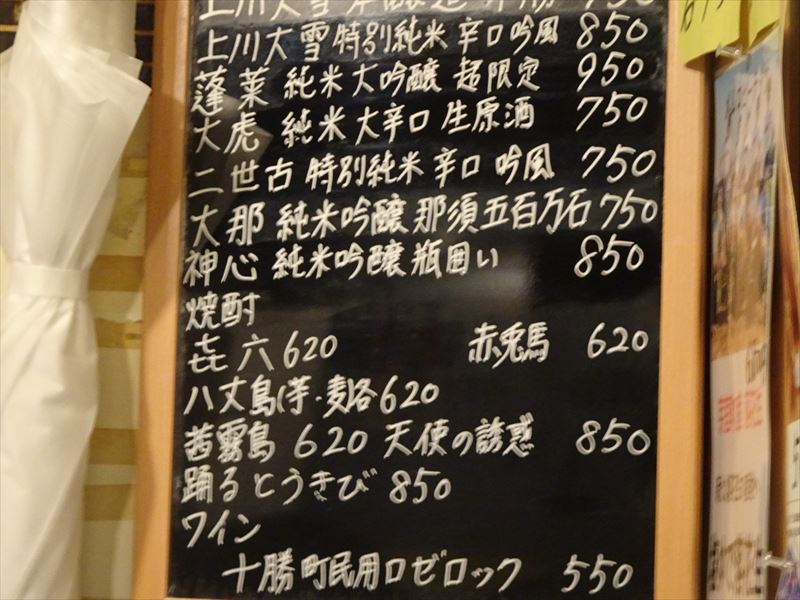 上川大雪 特別純米 辛口吟風 850
蓬莱 純米大吟醸 超限定 950
大虎 純米大辛口 生原酒 750
二世古 特別純米 辛口 吟風 750
大那 純米吟醸 那須五百万石 750
神心 純米吟醸 瓶囲い 850
焼酎
㐂六 620 赤兎馬 620
八丈島(芋・麦)各620
茜霧島 620 天使の誘惑 850
踊るとうきび 850
ワイン
十勝町民用ロゼロック 550